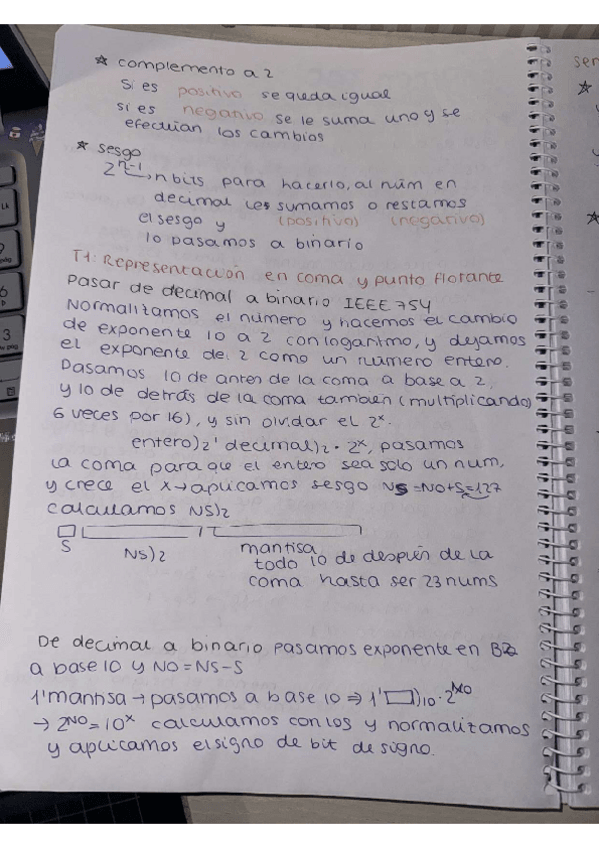 ★ complemento a 2
Si es positivo se queda igual
si es negativo se le suma uno y se
efectúan los cambios
★ sesgo
2^n-1, n bits para hacerlo, al núm en
decimal les sumamos o restamos
el sesgo y (positivo) (negativo)
lo pasamos a binario
T1: Representación en coma y punto flotante
Pasar de decimal a binario IEEE 754
Normalizamos el número y hacemos el cambio
de exponente 10 a 2 con logaritmo, y dejamos
el exponente de 2 como un número entero.
Pasamos lo de antes de la coma a base a 2,
y lo de detrás de la coma también (multiplicando
6 veces por 16), y sin olvidar el 2^x.
entero)2' decimal)2 · 2^x, pasamos
la coma para que el entero sea solo un num,
y crece el x → aplicamos sesgo NS=NO+S=127
calculamos NS)2
S NS)2 mantisa
todo lo de después de la
coma hasta ser 23 nums
De decimal a binario pasamos exponente en B2
a base 10 y NO=NS-S
1'mantisa → pasamos a base 10 ⇒ 1' )10 · 2^NO
→ 2^NO = 10^x calculamos con los y normalizamos
y aplicamos el signo de bit de signo.
ser